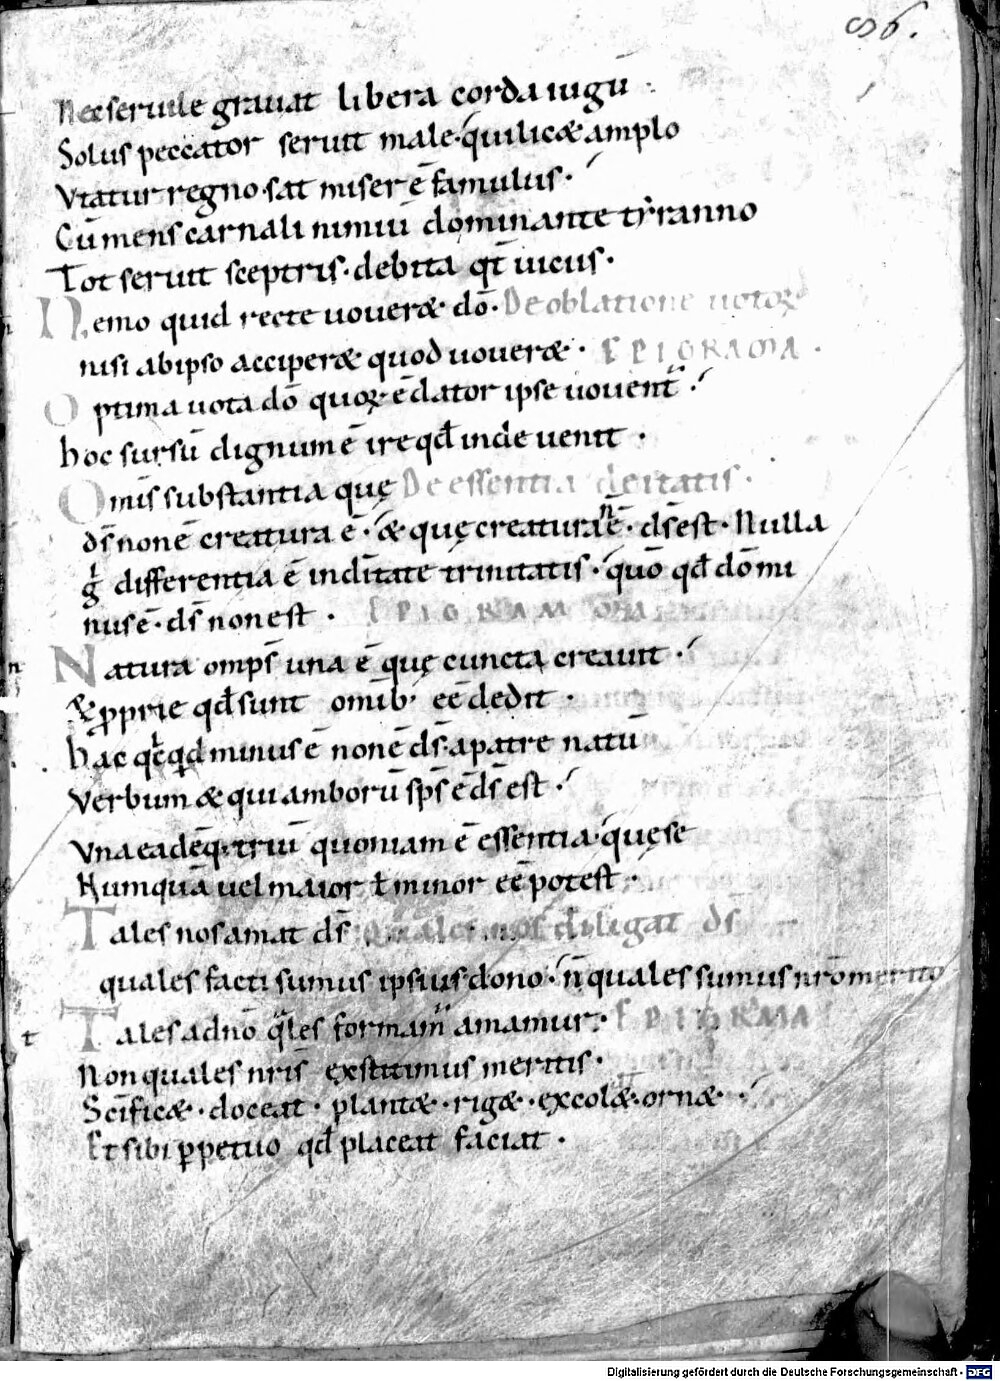 86.
Nec seruile grauat libera corda iugū
Solus peccator seruit male · qui licæ amplo
Vtatur regno · sat miser ē famulus ·
Cū mens carnali nimiū dominante tyranno
Tot seruit sceptris · debita qт̄ uicus ·
Nemo quid recte uoueræ dō · De oblatione uotoꝝ
nisi ab ipso acciperæ quod uoueræ · EPIGRAMA ·
Optima uota dō quoꝝ ē dator ipse uouent̃ ·
hoc sursū dignum ē ire qđ inde uenit ·
Omīs substantia quę De essentia deitatis ·
d̄s non ē creatura ē · & quę creatura n̄ ē · d̄s est · Nulla
g̊ differentia ē in dīтate trinitatis · quō qđ dō mi
nus ē · d̄s non est · EPIGRAMMA
Natura omp̄s una ē quę cuncta creauit ·
& ꝓprie qđ sunt omib; eē dedit ·
hac qͥcqͥd minus ē non ē d̄s · a patre natū
Verbum & qui amborū sp̄s ē d̄s est ·
Vna eadēq; triū quoniam ē essentia · quę se
Numquā uel maior ł minor eē potest ·
Tales nos amat d̄s Quales nos diligat d̄s
quales facti sumus ipsius dono · n̄ quales sumus nr̄o merito
Tales a dn̄o qͣles formam̃ amamur · EPIGRAMA
Non quales nr̄is exstitimus meritis ·
Sc̄ificæ · doceat · plantæ · rigæ · excolæ · ornæ ·
Et sibi ꝑpetuo qđ placeat faciat ·
Digitalisierung gefördert durch die Deutsche Forschungsgemeinschaft - DFG